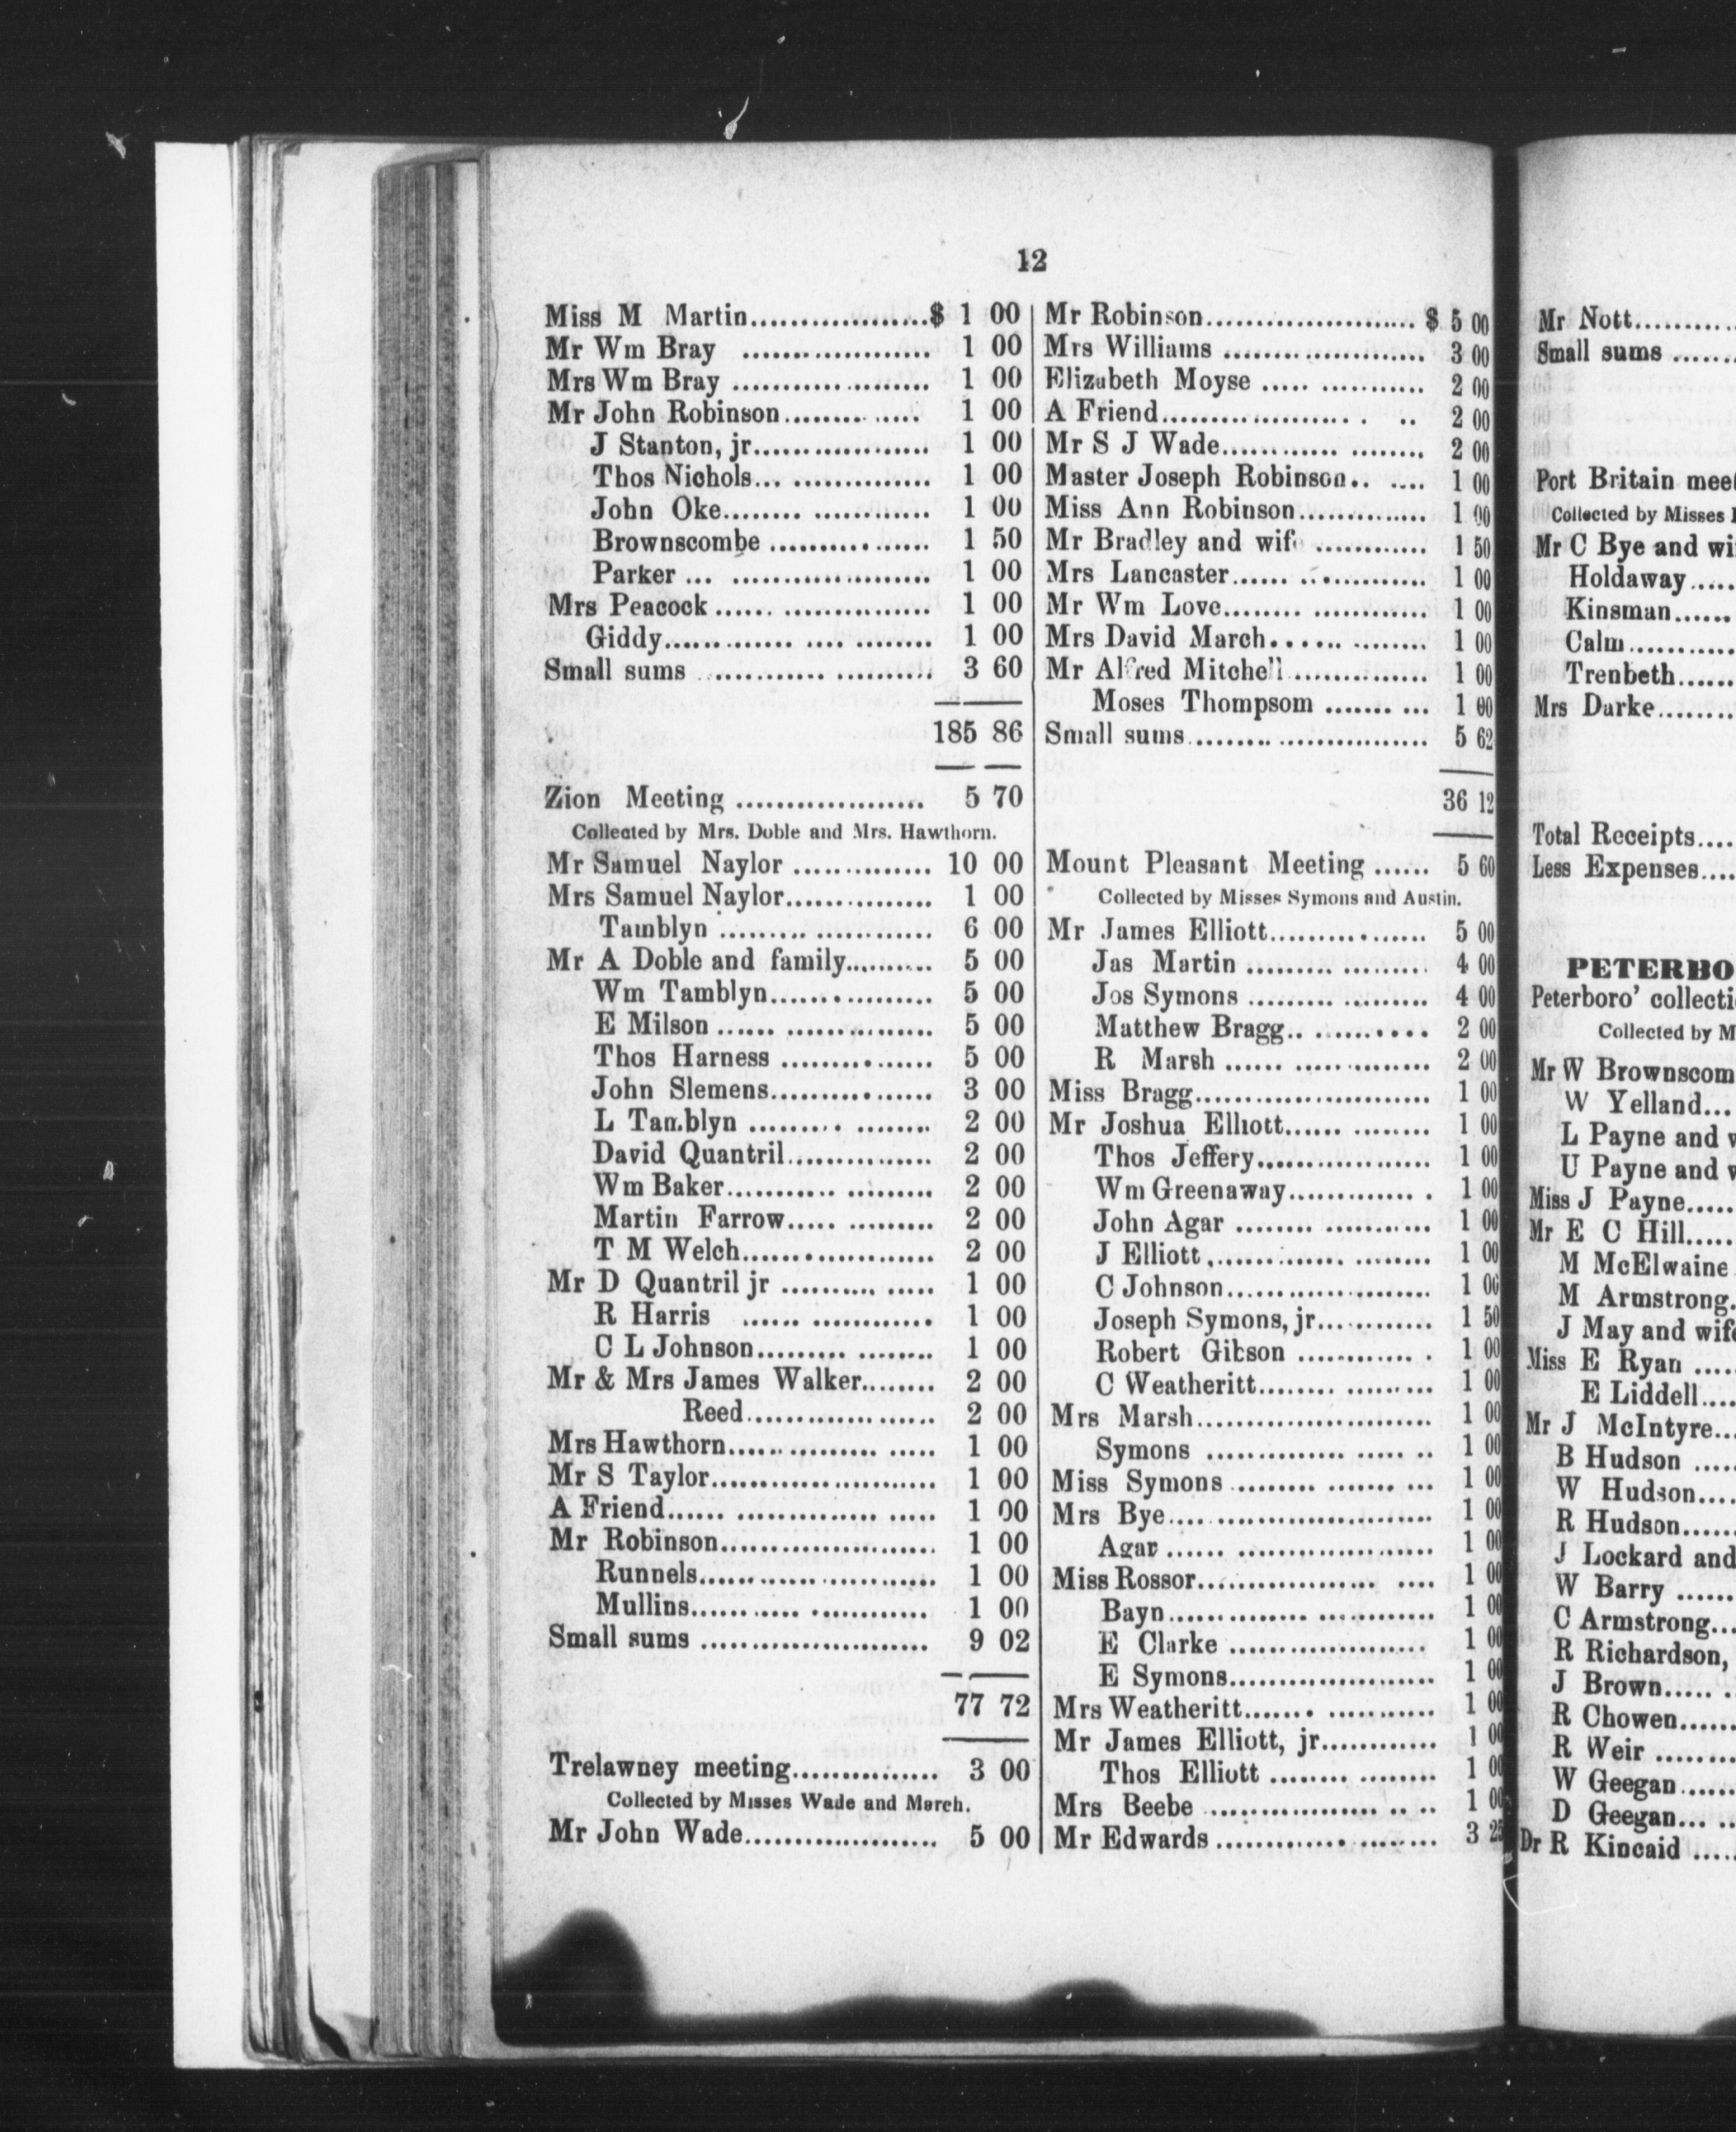 12
Miss M Martin...................$ 1 00
Mr Wm Bray ................... 1 00
Mrs Wm Bray .................... 1 00
Mr John Robinson.............. 1 00
J Stanton, jr.................. 1 00
Thos Nichols... .............. 1 00
John Oke........ ............ 1 00
Brownscombe ................ 1 50
Parker ... .................... 1 00
Mrs Peacock ...... ............... 1 00
Giddy............. .... ........ 1 00
Small sums .............. .......... 3 60
185 86
Zion Meeting ................... 5 70
Collected by Mrs. Doble and Mrs. Hawthorn.
Mr Samuel Naylor .............. 10 00
Mrs Samuel Naylor............... 1 00
Tamblyn ......... ............ 6 00
Mr A Doble and family.......... 5 00
Wm Tamblyn................ 5 00
E Milson ...... ............... 5 00
Thos Harness ............... 5 00
John Slemens................ 3 00
L Tamblyn .......... ........ 2 00
David Quantril............... 2 00
Wm Baker........... ......... 2 00
Martin Farrow..... ......... 2 00
T M Welch.................... 2 00
Mr D Quantril jr .......... ..... 1 00
R Harris ...... ............ 1 00
C L Johnson......... ........ 1 00
Mr & Mrs James Walker........ 2 00
Reed................... 2 00
Mrs Hawthorn...... ......... ..... 1 00
Mr S Taylor....................... 1 00
A Friend...... .............. ..... 1 00
Mr Robinson...................... 1 00
Runnels............ ............ 1 00
Mullins........... ............ 1 00
Small sums ....................... 9 02
77 72
Trelawney meeting............... 3 00
Collected by Misses Wade and March.
Mr John Wade.................... 5 00
Mr Robinson..................... $ 5 00
Mrs Williams ..................... 3 00
Elizabeth Moyse ..... ........... 2 00
A Friend.................... . .. 2 00
Mr S J Wade............. ........ 2 00
Master Joseph Robinson.. .... 1 00
Miss Ann Robinson............. 1 00
Mr Bradley and wife ............ 1 50
Mrs Lancaster...... ............. 1 00
Mr Wm Love........ ............ 1 00
Mrs David March....... ........ 1 00
Mr Alfred Mitchell .............. 1 00
Moses Thompsom ....... ... 1 00
Small sums........ ............... 5 62
36 12
Mount Pleasant Meeting ...... 5 60
Collected by Misses Symons and Austin.
Mr James Elliott................ 5 00
Jas Martin ......... ......... 4 00
Jos Symons ......... ......... 4 00
Matthew Bragg.. ........... 2 00
R Marsh ...... .............. 2 00
Miss Bragg........................ 1 00
Mr Joshua Elliott...... ........ 1 00
Thos Jeffery.................. 1 00
Wm Greenaway............. . 1 00
John Agar ........ ........... 1 00
J Elliott ............. ........ 1 00
C Johnson..................... 1 00
Joseph Symons, jr............ 1 50
Robert Gibson ............ . 1 00
C Weatheritt........ ......... 1 00
Mrs Marsh........................ 1 00
Symons ................ ..... .. 1 00
Miss Symons ......... ....... ... 1 00
Mrs Bye.... ...................... 1 00
Agar ...... .................... 1 00
Miss Rossor.................. .... 1 00
Bayn.............. ............ 1 00
E Clarke .................... 1 00
E Symons..................... 1 00
Mrs Weatheritt....... ........... 1 00
Mr James Elliott, jr............ 1 00
Thos Elliott ........ ......... 1 00
Mrs Beebe ................. .. .. 1 00
Mr Edwards ............. ........ 3 25
Mr Nott..........
Small sums ......
Port Britain
Collected by Misses
Mr C Bye and
Holdaway.....
Kinsman......
Calm...........
Trenbeth......
Mrs Darke........
Total Receipts....
Less Expenses....
Peterboro'
Collected by
Mr W
W Yelland...
L Payne and
U Payne and
Miss J Payne.....
Mr E C Hill.....
M McElwaine
M Armstrong.
J May and
Miss E Ryan ....
E Liddell....
Mr J McIntyre...
B Hudson .....
W Hudson....
R Hudson......
J Lockard and
W Barry ......
C Armstrong...
R Richardson,
J Brown..... .
R Chowen......
R Weir ........
W Geegan......
D Geegan... ..
Dr R Kincaid ....